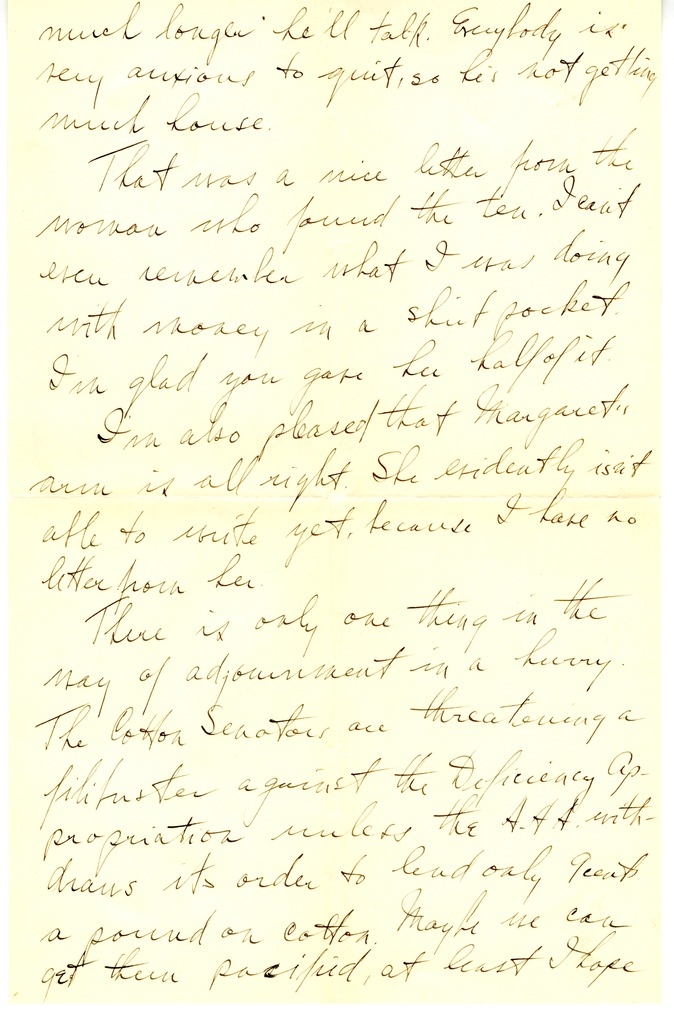 much longer he'll talk. Everybody is
very anxious to quit, so he's not getting
much house.
That was a nice letter from the
woman who found the ten. I can't
even remember what I was doing
with money in a shirt pocket.
I'm glad you gave her half of it.
I'm also pleased that Margaret's
arm is all right. She evidently isn't
able to write yet, because I have no
letter from her.
There is only one thing in the
way of adjournment in a hurry.
The Cotton Senators are threatening a
filibuster against the Deficiency Ap-
propriation unless the A.A.A. with-
draws its order to lend only 9 cents
a pound on cotton. Maybe we can
get them pacified, at least I hope